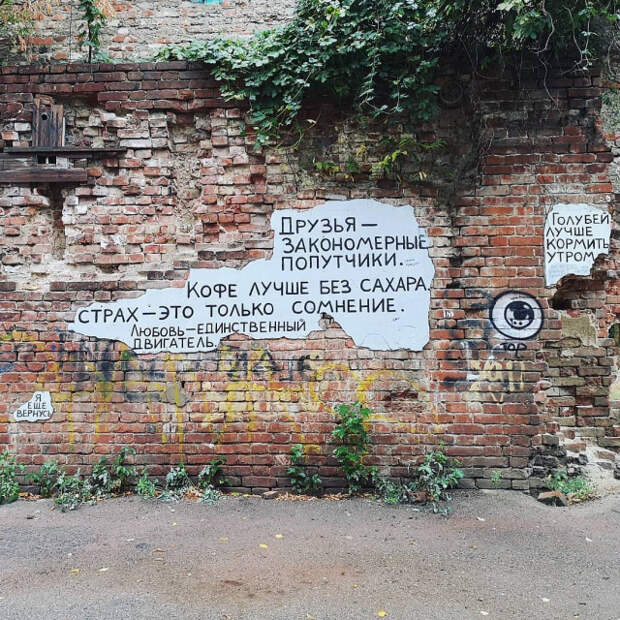 Друзья —
закономерные
попутчики.
Кофе лучше без сахара.
Страх — это только сомнение.
Любовь — единственный
двигатель.
Голубей
лучше
кормить
утром
Я
еще
вернусь